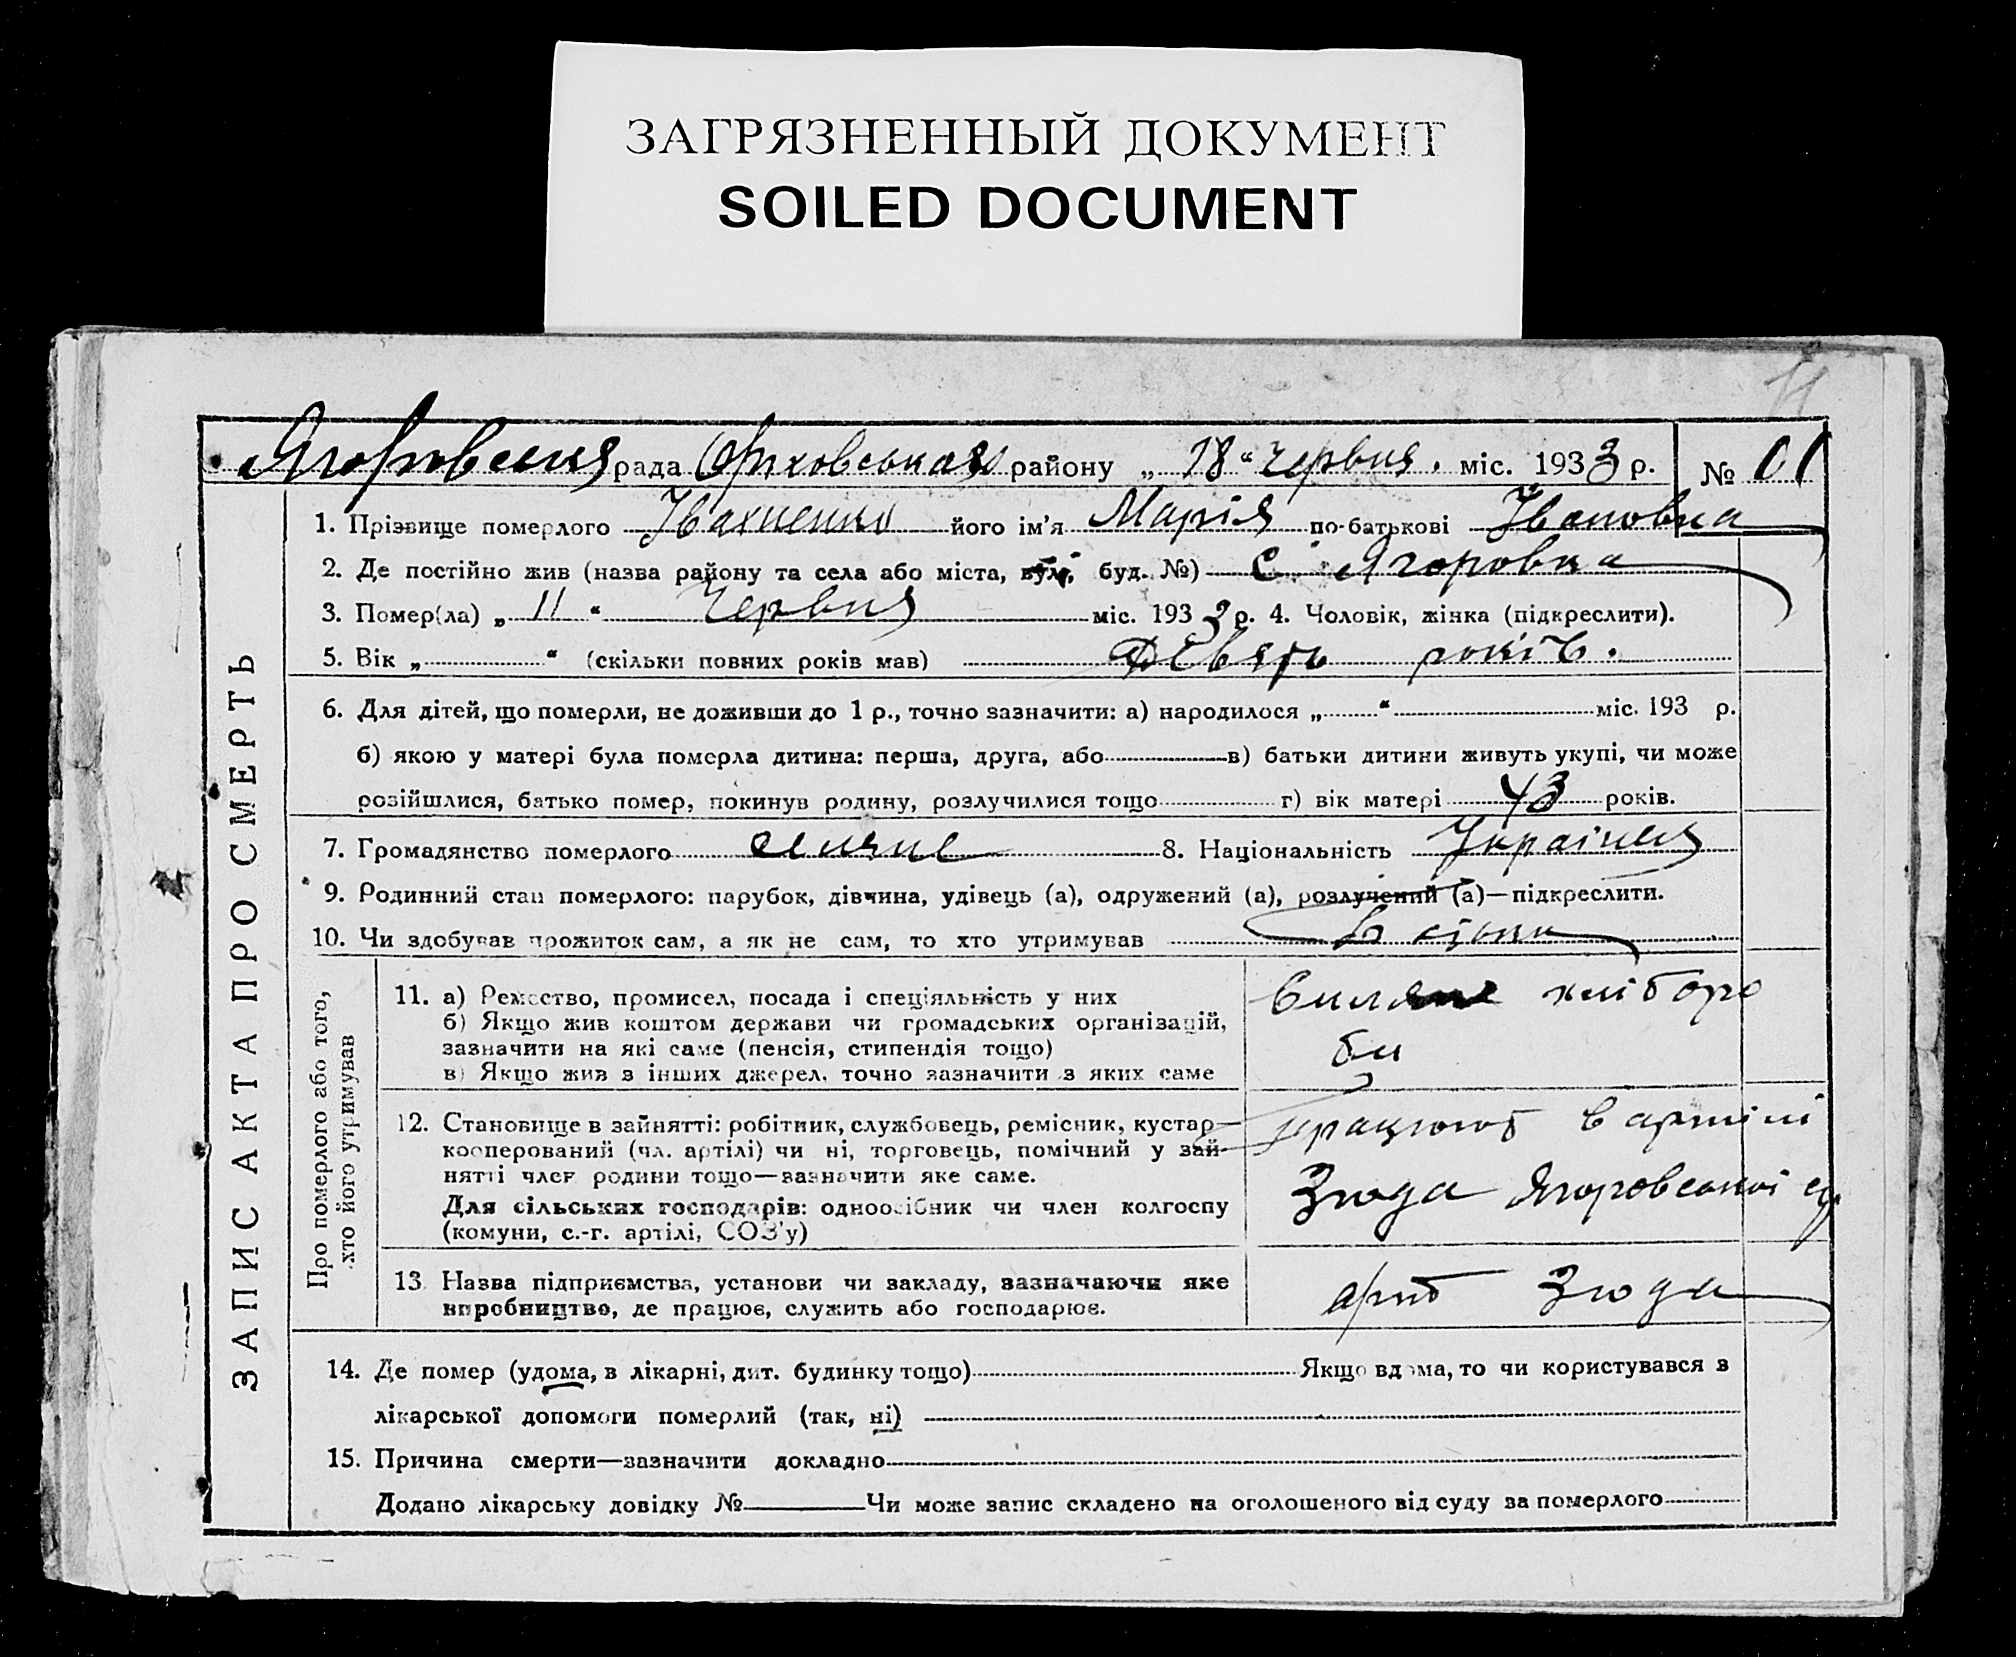 ЗАГРЯЗНЕННЫЙ ДОКУМЕНТ
SOILED DOCUMENT
Ягоровська рада Оріховського району „ 18 “ червня міс. 1933 р. № 01
ЗАПИС АКТА ПРО СМЕРТЬ
1. Прізвище померлого Івахненко його ім’я Марія по-батькові Івановна
2. Де постійно жив (назва району та села або міста, вул., буд. №) с Ягоровка
3. Помер(ла) „ 11 “ Червня міс. 1933 р. 4. Чоловік, жінка (підкреслити).
5. Вік „ “ (скільки повних років мав) девять років.
6. Для дітей, що померли, не доживши до 1 р., точно зазначити: а) народилося „ “ міс. 193 р.
б) якою у матері була померла дитина: перша, друга, або в) батьки дитини живуть укупі, чи може
розійшлися, батько помер, покинув родину, розлучилися тощо г) вік матері 43 років.
7. Громадянство померлого 8. Національність Україней
9. Родинний стан померлого: парубок, дівчина, удівець (а), одружений (а), розлучений (а)—підкреслити.
10. Чи здобував прожиток сам, а як не сам, то хто утримував
Про померлого або того,
хто його утримував
11. а) Ремество, промисел, посада і спеціяльність у них
б) Якщо жив коштом держави чи громадських організацій,
зазначити на які саме (пенсія, стипендія тощо)
в) Якщо жив з інших джерел, точно зазначити з яких саме
хліборо
би
12. Становище в зайнятті: робітник, службовець, ремісник, кустар
кооперований (чл. артілі) чи ні, торговець, помічний у зай-
нятті член родини тощо—зазначити яке саме.
Для сільських господарів: одноосібник чи член колгоспу
(комуни, с.-г. артілі, СОЗ’у)
працюют в артілі
Згода Ягоровської
13. Назва підприємства, установи чи закладу, зазначаючи яке
виробництво, де працює, служить або господарює.
арт Згода
14. Де помер (удома, в лікарні, дит. будинку тощо) Якщо вдома, то чи користувався з
лікарської допомоги померлий (так, ні)
15. Причина смерти—зазначити докладно
Додано лікарську довідку № Чи може запис складено на оголошеного від суду за померлого